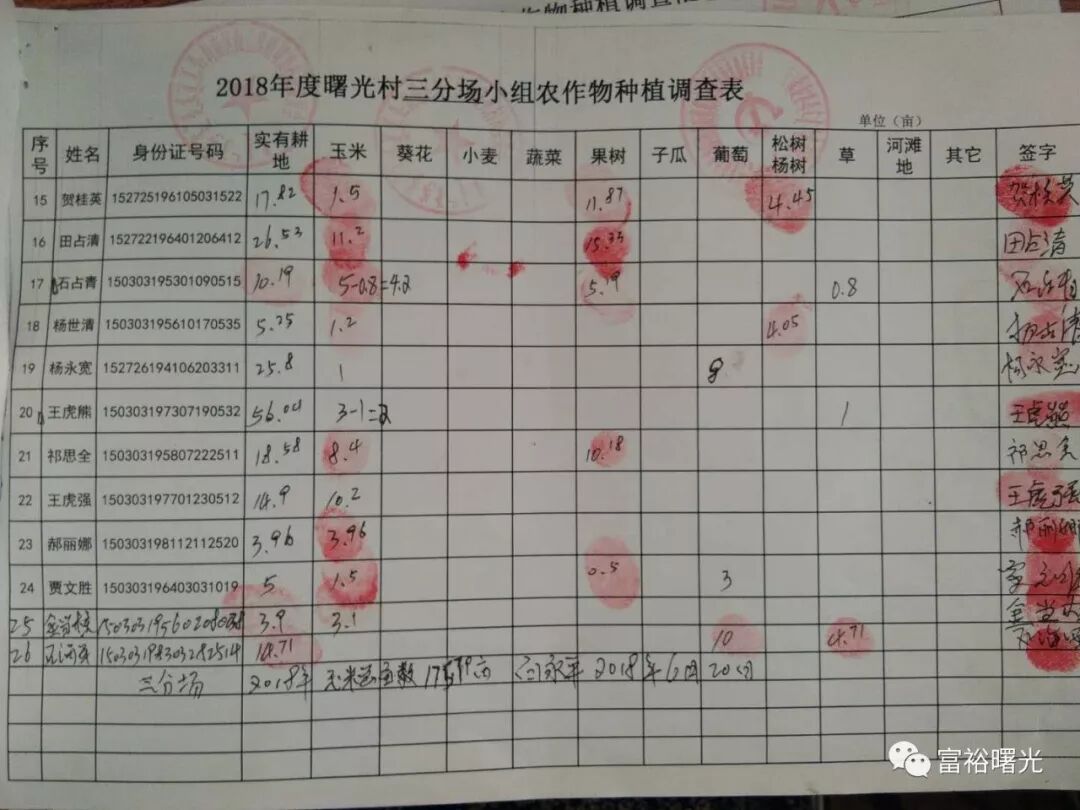 2018年度曙光村三分场小组农作物种植调查表
单位（亩）
序号 姓名 身份证号码 实有耕地 玉米 葵花 小麦 蔬菜 果树 子瓜 葡萄 松树杨树 草 河滩地 其它 签字
15 贺桂英 152725196105031522 17.82 1.5 11.87 4.45 贺桂英
16 田占清 152722196401206412 26.53 11.2 15.33 田占清
17 石占青 150303195301090515 10.19 5-0.8=4.2 5.19 0.8
18 杨世清 150303195610170535 5.25 1.2 4.05
19 杨永宽 152726194106203311 25.8 1 8 杨永宽
20 王虎熊 150303197307190532 56.04 3-1=2 1 王虎熊
21 祁思全 150303195807222511 18.58 8.4 10.18 祁思全
22 王虎强 150303197701230512 14.9 10.2 王虎强
23 郝丽娜 150303198112112520 3.96 3.96 郝丽娜
24 贾文胜 150303196403031019 5 1.5 0.5 3
25 3.9 3.1
26 150303198303282514 14.71 10 4.71
三分场 2018年 玉米 亩数 2018年6月20日
富裕曙光